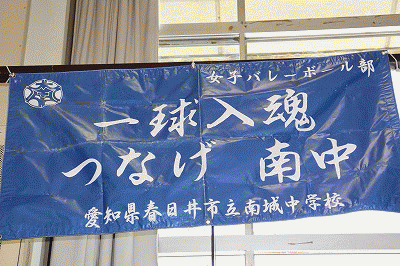 女子バレーボール部
一球入魂
つなげ 南中
愛知県春日井市立南城中学校